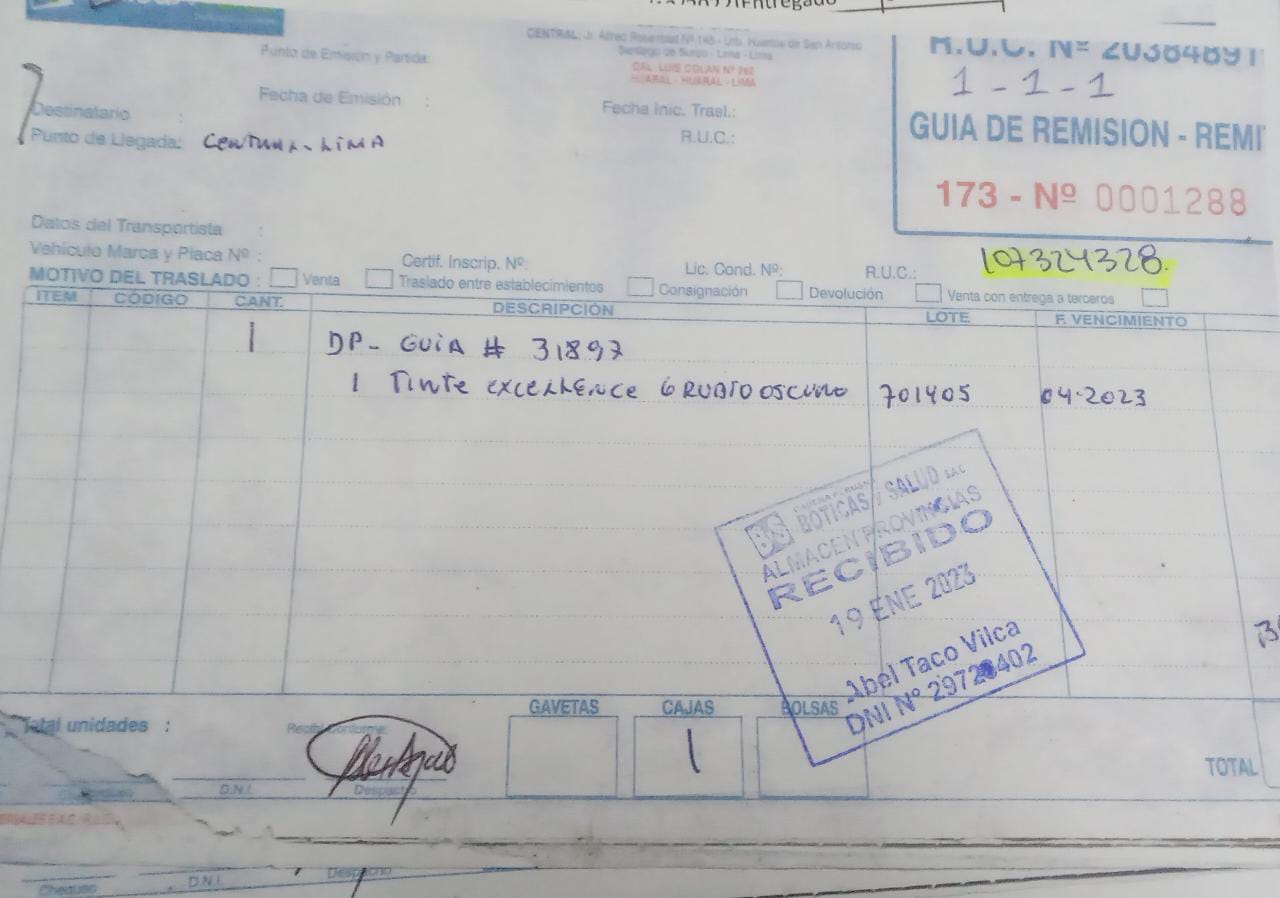 Entregado
Punto de Emisión y Partida:
CENTRAL: Jr. Alfred Rosenblat Nº 145 - Urb. Huertos de San Antonio
Santiago de Surco - Lima - Lima
CAL. LUIS COLAN Nº 262
HUARAL - HUARAL - LIMA
R.U.C. Nº 20384891
1 - 1 - 1
Fecha de Emisión :
Fecha Inic. Trasl.:
Destinatario :
R.U.C.:
GUIA DE REMISION - REMI
Punto de Llegada: CENTRAL - LIMA
173 - Nº 0001288
Datos del Transportista :
Vehículo Marca y Placa Nº :
Certif. Inscrip. Nº:
Lic. Cond. Nº:
R.U.C.:
107324328.
MOTIVO DEL TRASLADO : Venta Traslado entre establecimientos Consignación Devolución Venta con entrega a terceros
ITEM CÓDIGO CANT. DESCRIPCIÓN LOTE F. VENCIMIENTO
1 DP- GUIA # 31897
1 TINTE EXCELLENCE 6 RUBIO OSCURO 701405 04-2023
BS BOTICAS y SALUD SAC
ALMACEN PROVINCIAS
RECIBIDO
19 ENE 2023
Abel Taco Vilca
DNI Nº 29728402
Total unidades :
Recibi Conforme:
GAVETAS CAJAS BOLSAS
1
TOTAL
Chequeo D.N.I. Despacho
Chequeo D.N.I. Despacho